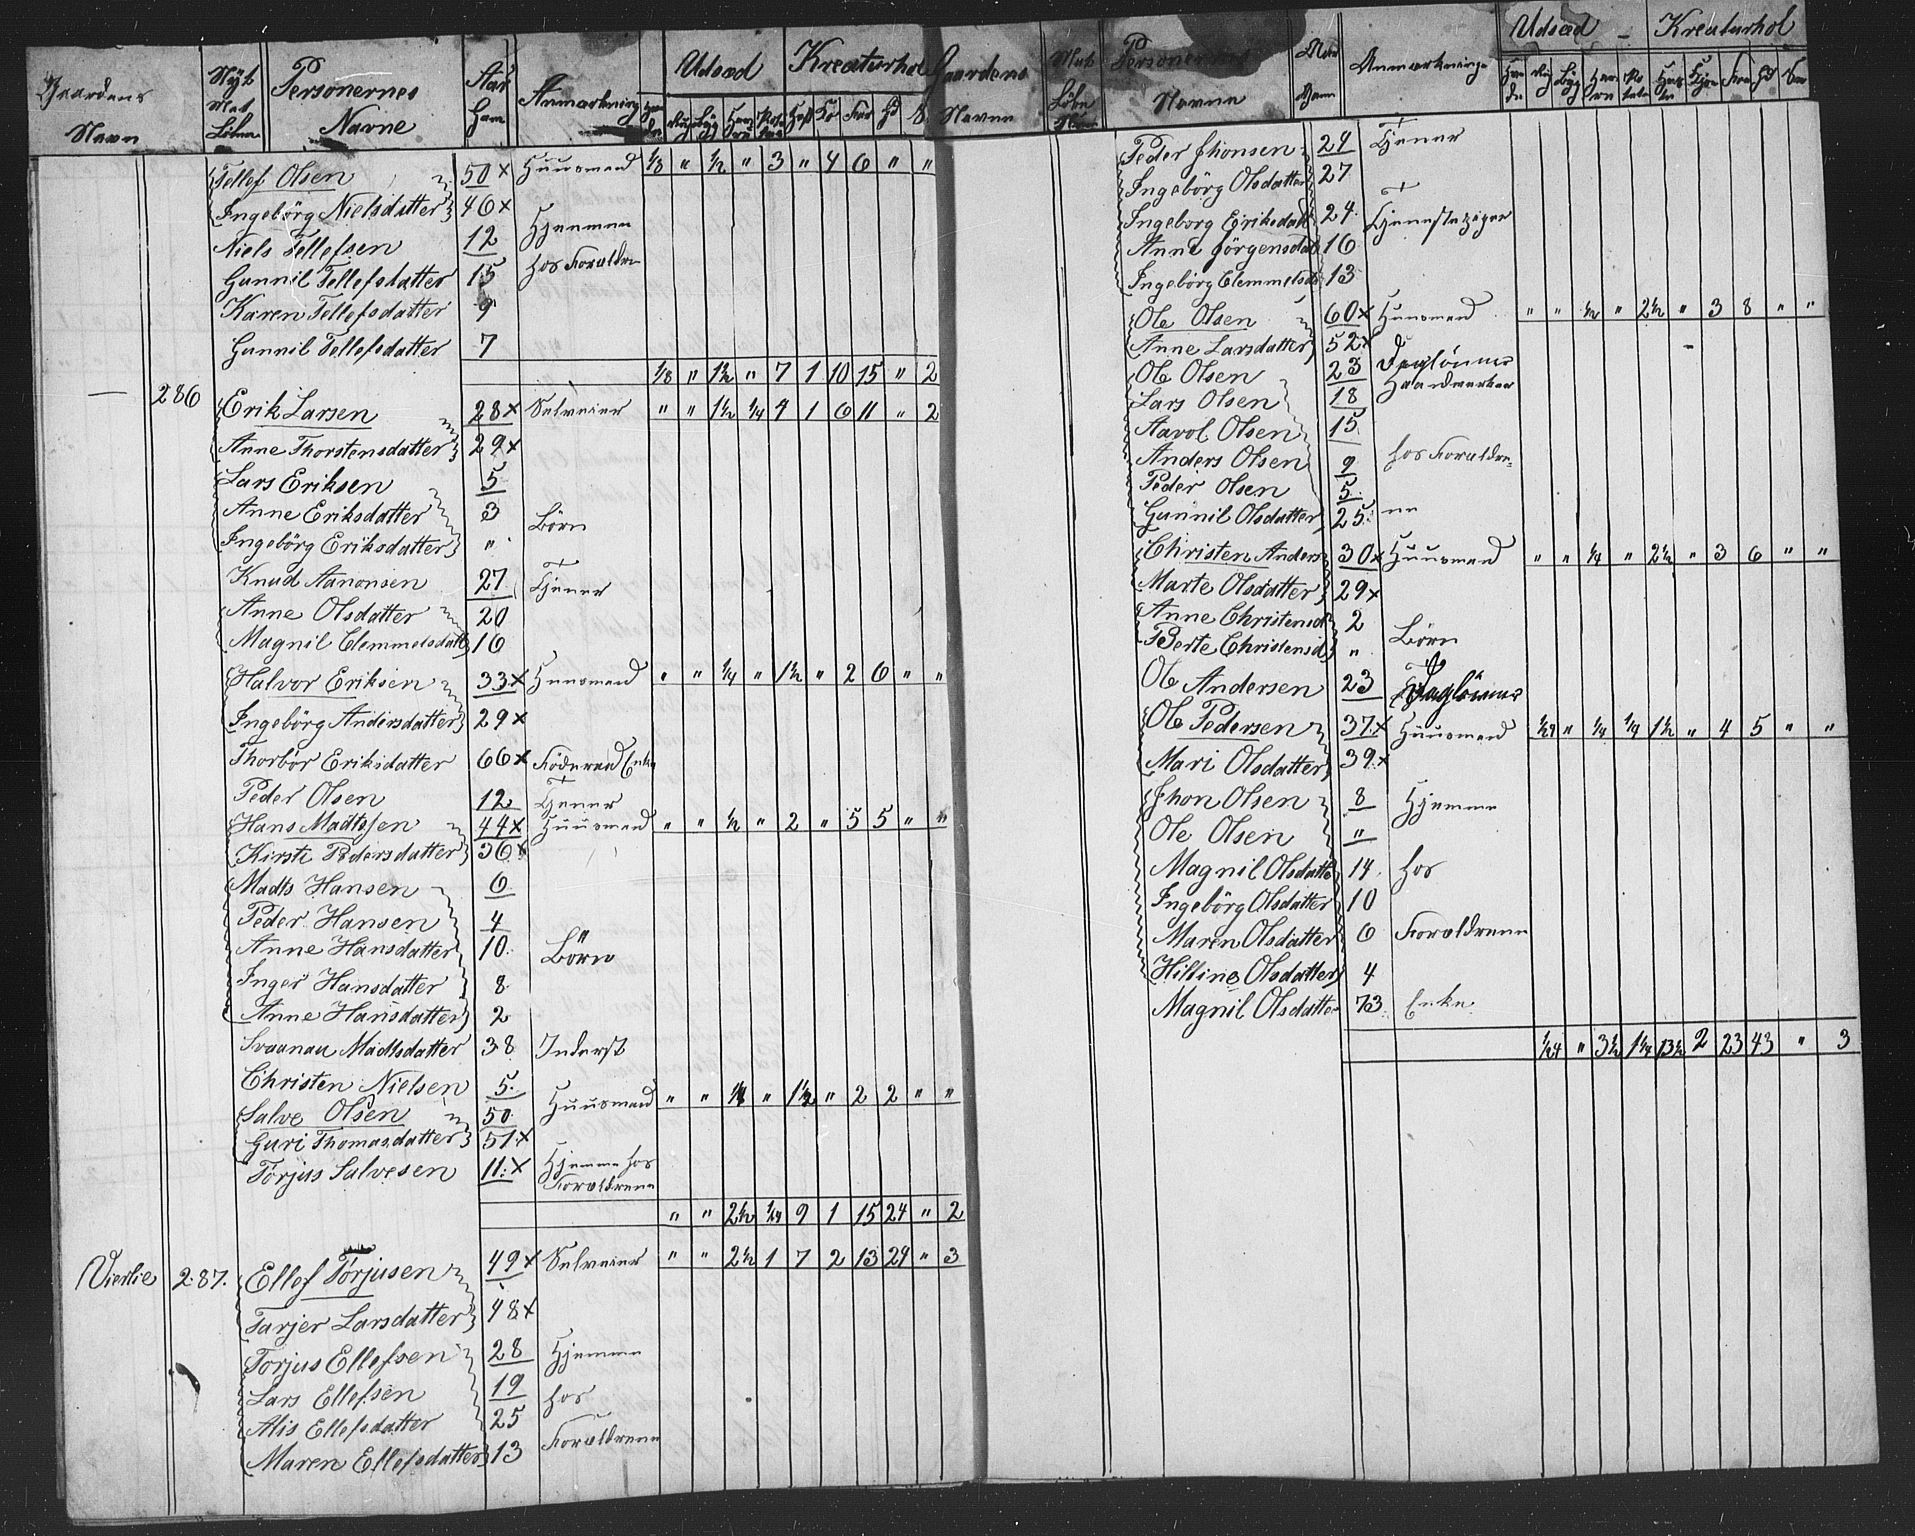 Gaardens Navn | Nÿt Mat Löbne | Personernes Navne | Aar Ham | Anmærkning | Udsæd | Kreaturhol
Tellef Olsen 50 x Huusmand 1/8 " 1/2 " 3 " 4 6 " "
Ingebörg Nielsdatter 46 x
Niels Tellefsen 12 Hjemme
Gunnil Tellefsdatter 15 hos Foraldre
Karen Tellefsdatter 9
Gunnil Tellefsdatter 7
1/8 " 1 1/2 " 7 1 10 15 " 2
— 286 Erik Larsen 28 x Selveier " " 1 1/2 1/4 4 1 6 11 " 2
Anne Thorstensdatter 29 x
Lars Eriksen 5
Anne Eriksdatter 3 Börn
Ingebörg Eriksdatter "
Knud Aanonsen 27 Tjener
Anne Olsdatter 20
Magnil Clemmetsdatt 16
Halvor Eriksen 33 x Huusmand " " 1/4 " 1 1/2 " 2 6 " "
Ingebörg Andersdatter 29 x
Thorbör Eriksdatter 66 x Föderaad Enke
Peder Olsen 12 Tjener
Hans Madtssen 44 x Huusmand " " 1/2 " 2 " 5 5 " "
Kirste Pedersdatter 36 x
Madts Hansen 6
Peder Hansen 4
Anne Hansdatter 10 Börn
Inger Hansdatter 8
Anne Hansdatter 2
Svaanau Madtsdatter 38 Inderst
Christen Nielsen 5
Salve Olsen 50 Huusmand " " 1/4 " 1 1/2 " 2 2 " "
Guri Thomasdatter 51 x
Torjus Salvesen 11 x Hjemme hos Foraldrene
" " 2 1/2 1/24 9 1 15 24 " 2
Vierlie 287. Ellef Torjusen 49 x Selveier " " 2 1/2 1 7 2 13 24 " 3
Tarjer Larsdatter 48 x
Torjus Ellefsen 28 Hjemme
Lars Ellefsen 19 hos
Alis Ellefsdatter 25
Maren Ellefsdatter 13 Foraldrene
Gaardens Navne | Mat Löbe | Personernes Navne | Anmærkninge | Udsæd | Kreaturhol
Peder Jhonsen 24 Tjener
Ingebörg Olsdatter 27
Ingeborg Eiriksdatt 24 Tjenestepiger
Anne Jörgensdat 16
Ingebörg Clemmetsd 13
Ole Olsen 60 x Huusmand " " 1/2 " 2 1/2 " 3 8 " "
Anne Larsdatter 52 x
Ole Olsen 23 Daglönner
Lars Olsen 18 Haandverker
Aavol Olsen 15
Anders Olsen 9 hos Foraldre
Peder Olsen 5
Gunnil Olsdatter 25 ne
Christen Anders 30 x Huusmand " " 1/4 " 2 1/2 " 3 6 " "
Marte Olsdatter 29 x
Anne Christensd 2
Berte Christensd " Börn
Ole Andersen 23 Daglönner
Ole Pedersen 37 x Huusmand 1/24 " 1/4 1/4 1 1/2 " 4 5 " "
Mari Olsdatter 39 x
Jhon Olsen 8 Hjemme
Ole Olsen "
Magnil Olsdatte 14 hos
Ingebörg Olsdatter 10
Maren Olsdatter 6 Foraldrene
Hilline Olsdatter 4
Magnil Olsdatter 73 Enke
1/24 " 3 1/2 1 1/4 13 1/2 2 23 43 " 3